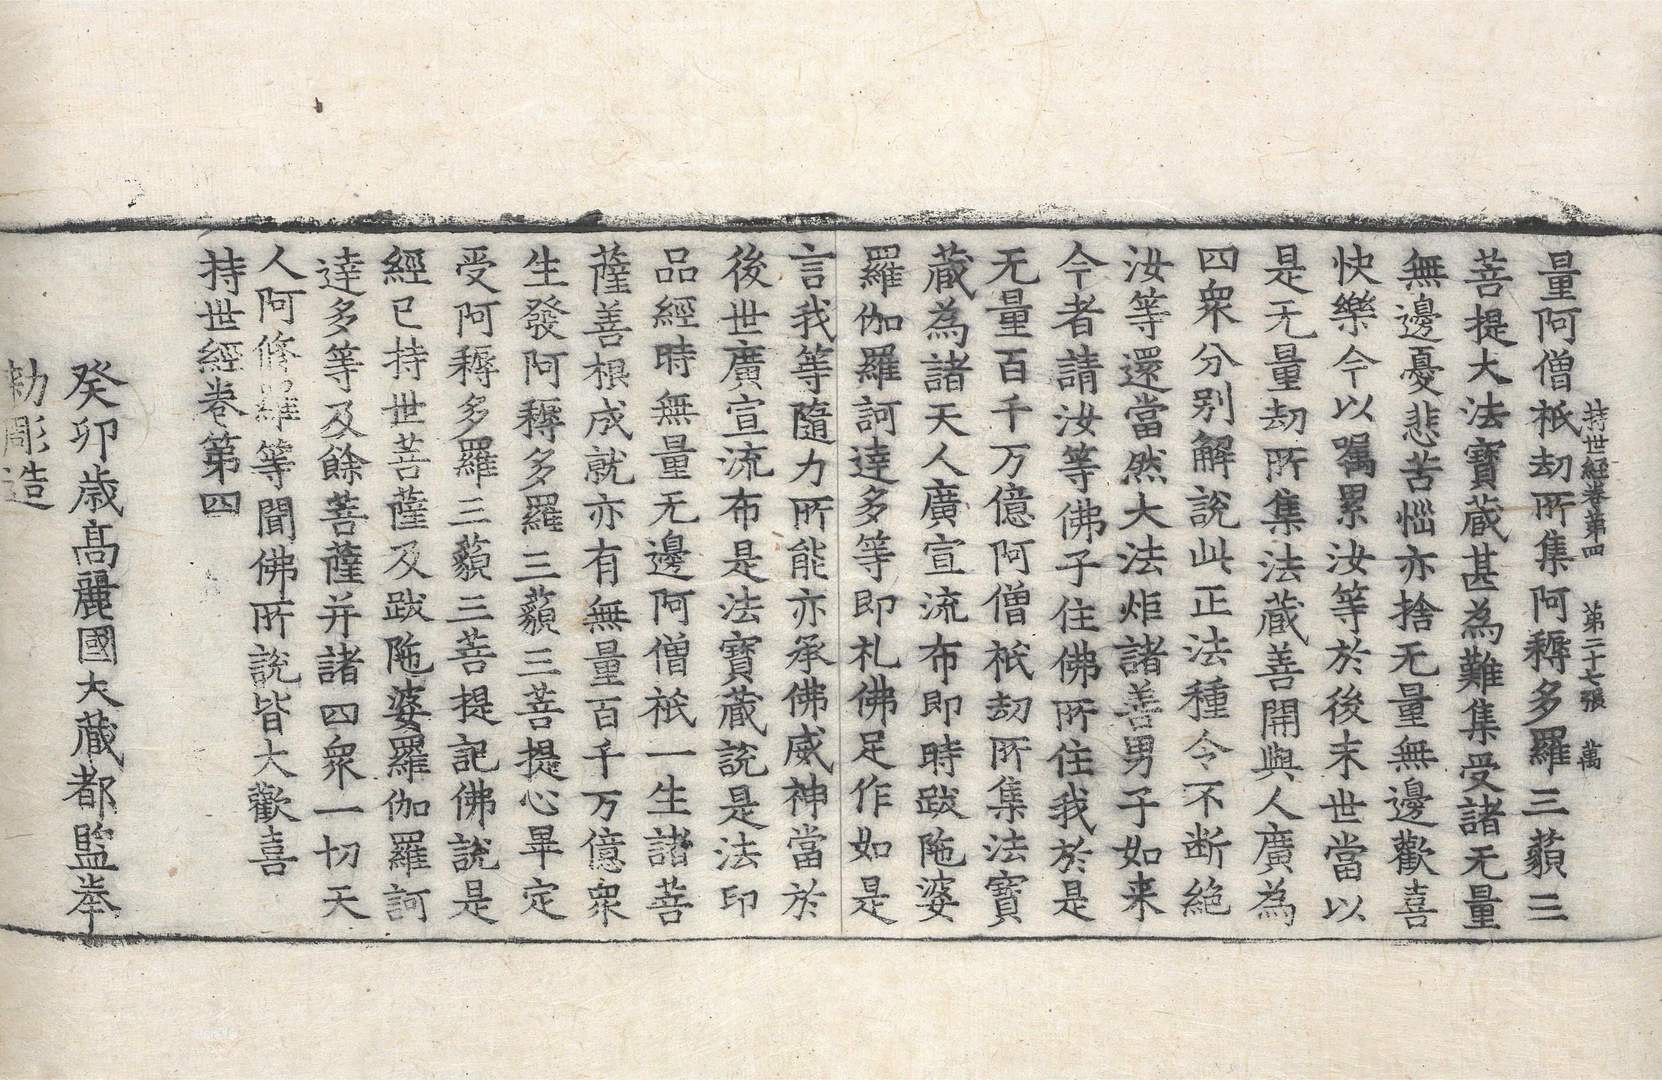 持世経卷第四 第二十七張 萬
量阿僧祇劫所集阿耨多羅三藐三
菩提大法寶藏甚為難集受諸无量
無邊憂悲苦惱亦捨无量無邊歡喜
快樂今以嘱累汝等於後末世當以
是无量劫所集法藏善開與人廣為
四衆分别解說此正法種令不断絶
汝等還當然大法炬諸善男子如来
今者請汝等佛子住佛所住我於是
无量百千万億阿僧祇劫所集法寶
藏為諸天人廣宣流布即時跋陁婆
羅伽羅訶達多等即礼佛足作如是
言我等隨力所能亦承佛威神當於
後世廣宣流布是法寶藏說是法印
品經時無量无邊阿僧祇一生諸菩
薩善根成就亦有無量百千万億衆
生發阿耨多羅三藐三菩提心畢定
受阿耨多羅三藐三菩提記佛說是
經已持世菩薩及跋陁婆羅伽羅訶
達多等及餘菩薩并諸四衆一切天
人阿修羅等聞佛所說皆大歡喜
持世經卷第四
癸卯歳高麗國大藏都監奉
勑彫造